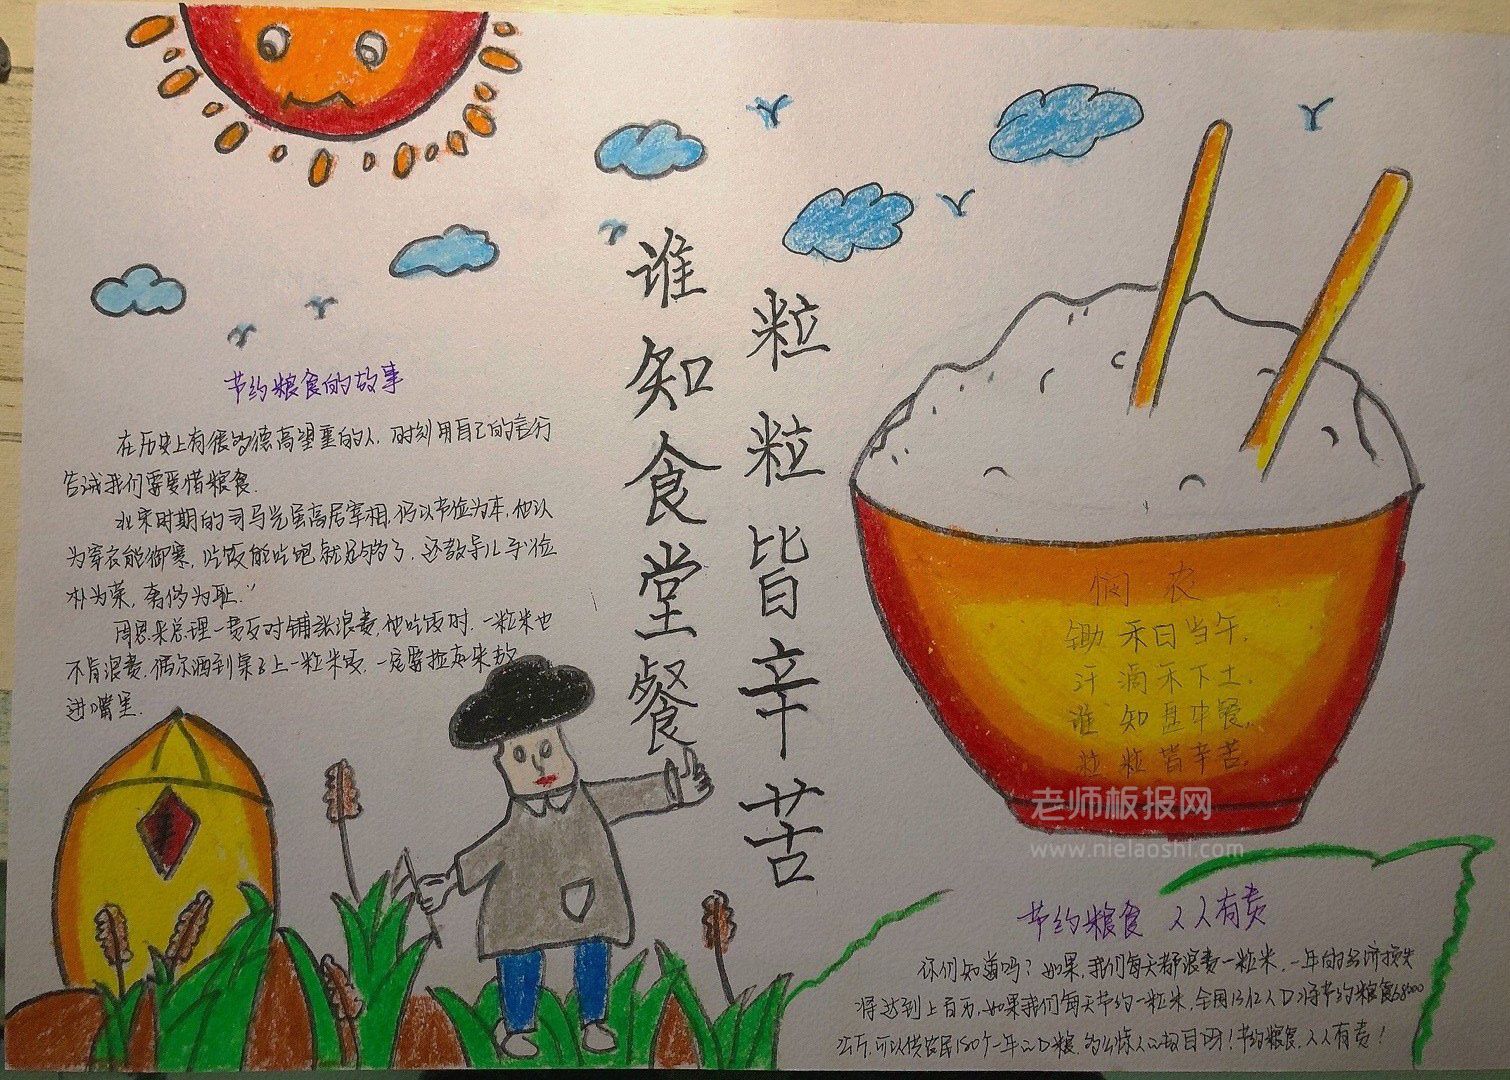 谁知食堂餐
粒粒皆辛苦
节约粮食的故事
在历史上有很多德高望重的人,时刻用自己的言行
告诫我们需要惜粮食.
北宋时期的司马光虽高居宰相,仍以节俭为本,他认
为穿衣能御寒,吃饭能吃饱就足够了.还教导儿子“俭
朴为荣,奢侈为耻.”
周恩来总理一贯反对铺张浪费,他吃饭时.一粒米也
不肯浪费.偶尔洒到桌子上一粒米饭,一定要捡起来放
进嘴里.
悯农
锄禾日当午,
汗滴禾下土.
谁知盘中餐,
粒粒皆辛苦.
老师板报网
www.nielaoshi.com
节约粮食 人人有责
你们知道吗?如果,我们每天都浪费一粒米,一年的经济损失
将达到上百万,如果我们每天节约一粒米,全国13亿人口将节约粮食68000
公斤,可以供农民150个一年的口粮.多么惊人的数目啊!节约粮食,人人有责!